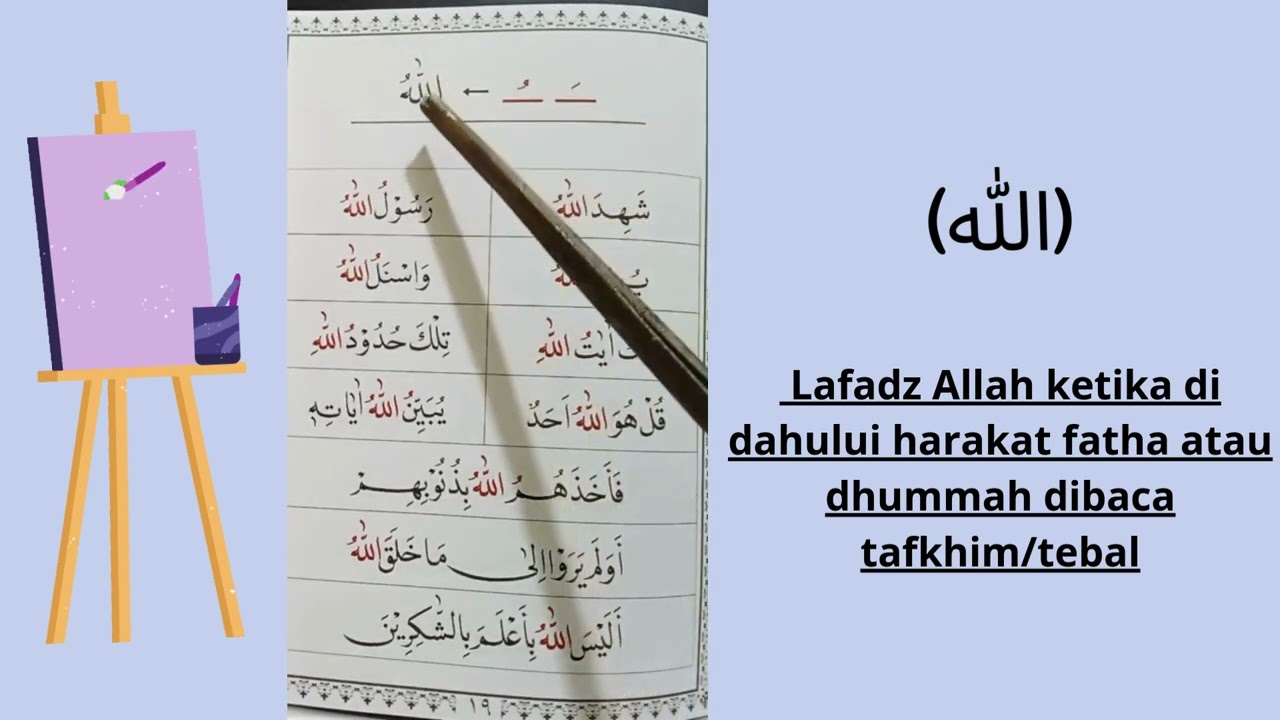 اللّٰهُ ← ـَ ـُ
شَهِدَ اللّٰهُ
رَسُوْلُ اللّٰهُ
وَاسْئَلُ اللّٰهُ
اٰيٰتُ اللّٰهِ
تِلْكَ حُدُوْدُ اللّٰهِ
قُلْ هُوَ اللّٰهُ اَحَدُ
يُبَيِّنُ اللّٰهُ اٰيَاتِهٖ
فَأَخَذَهُمُ اللّٰهُ بِذُنُوْبِهِمْ
أَوَلَمْ يَرَوْا اِلٰى مَا خَلَقَ اللّٰهُ
أَلَيْسَ اللّٰهُ بِأَعْلَمَ بِالشّٰكِرِيْنَ
١٩
(اللّٰه)
Lafadz Allah ketika di
dahului harakat fatha atau
dhummah dibaca
tafkhim/tebal